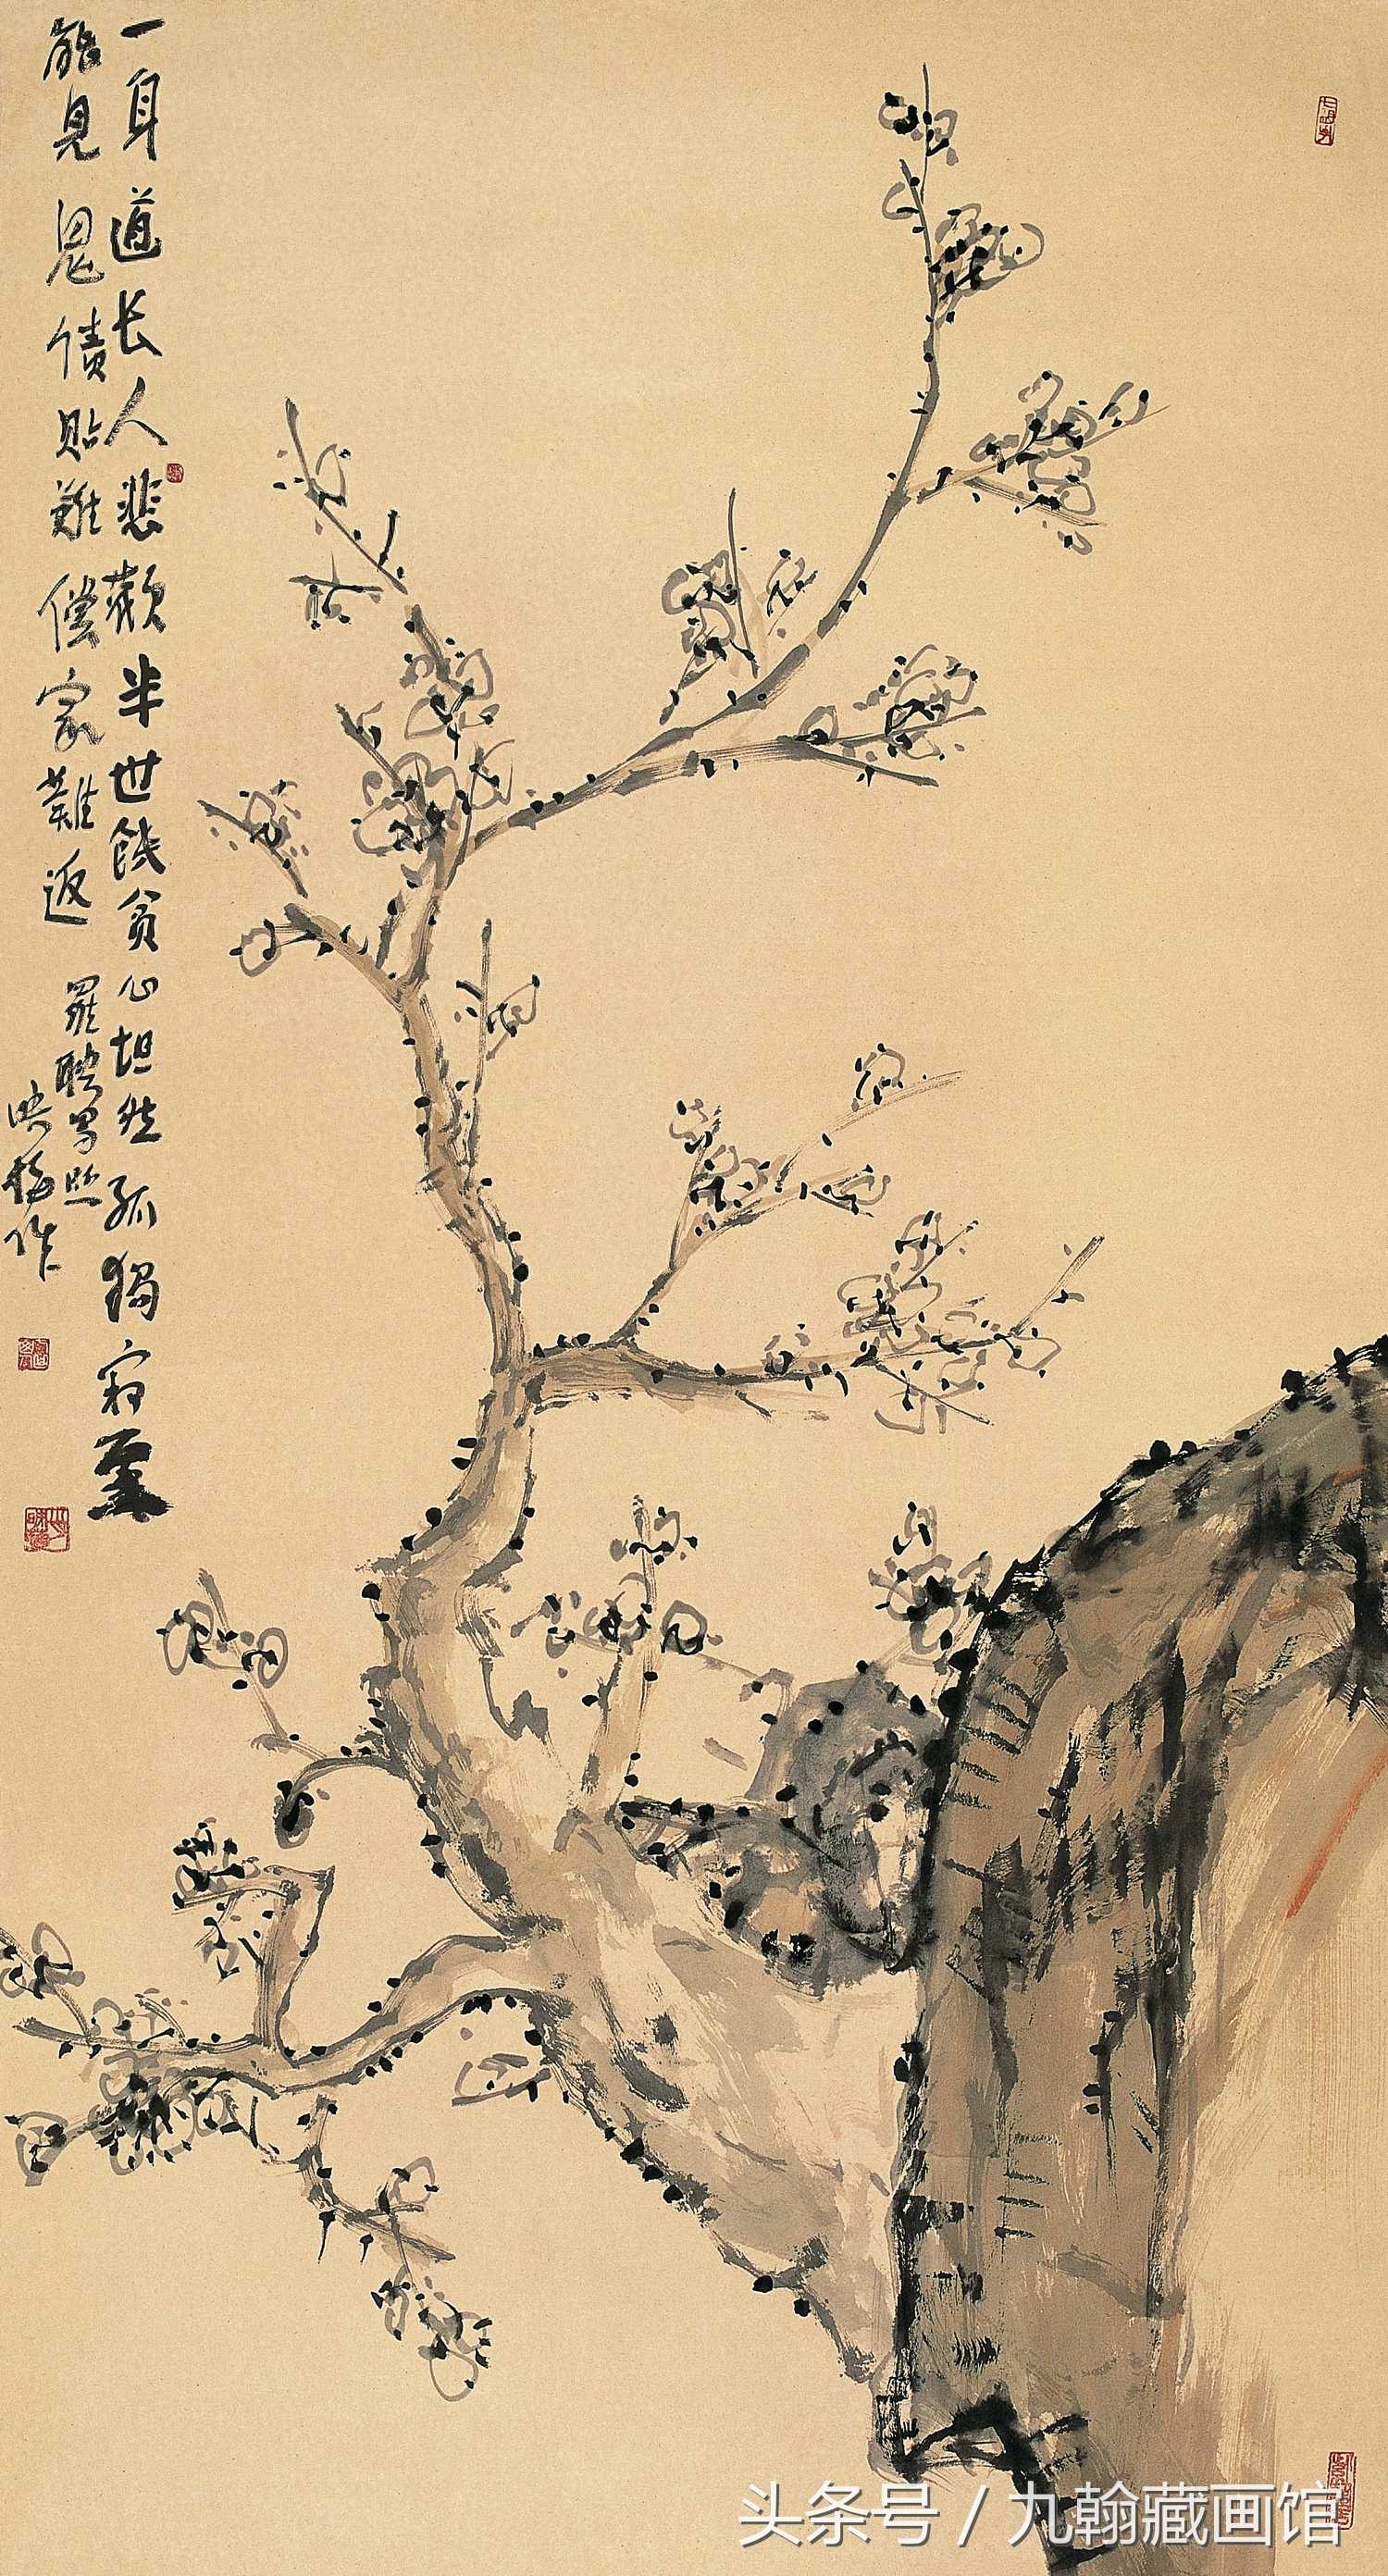 一身道长人悲歎半世饑贫心坦然孤獨寂寞
能見鬼债贴難偿家難返
罗聘写照
映梅作
头条号 / 九翰藏画馆